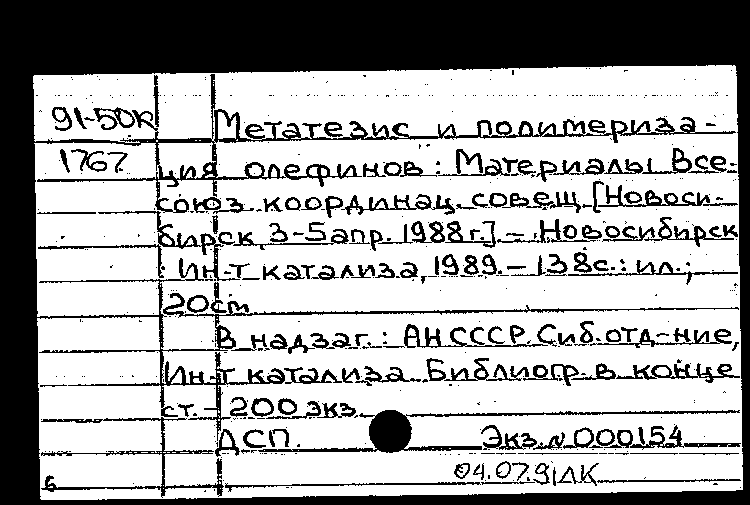 91-50К
1767
Метатезис и полимериза-
ция олефинов : Материалы Все-
союз. координац. совещ. [Новоси-
бирск, 3-5 апр. 1988 г.] - Новосибирск
: Ин-т катализа, 1989. - 138 с. : ил.;
20 см
В надзаг.: АН СССР. Сиб. отд-ние,
Ин-т катализа. Библиогр. в конце
ст. - 200 экз.
ДСП. Экз. № 000154
04.07.91 ЛК
6